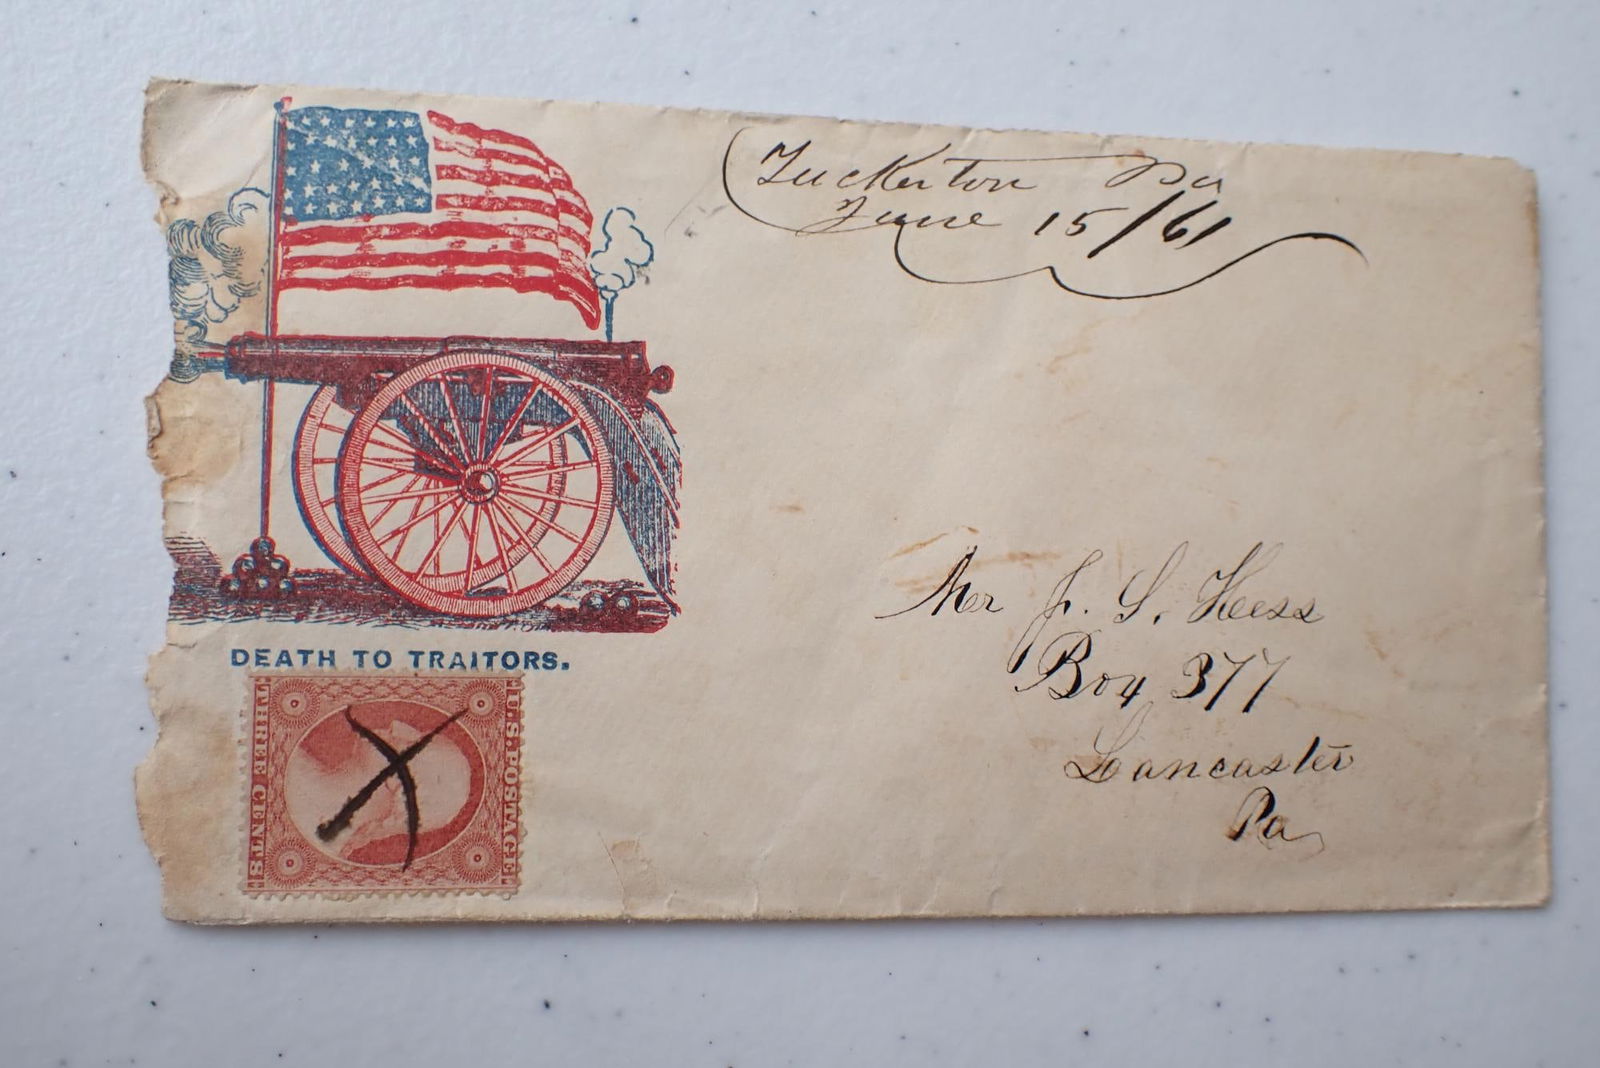 Tuckerton Pa
June 15/61
DEATH TO TRAITORS.
U.S. POSTAGE
THREE CENTS
Mr J. S. Hess
Box 377
Lancaster
Pa